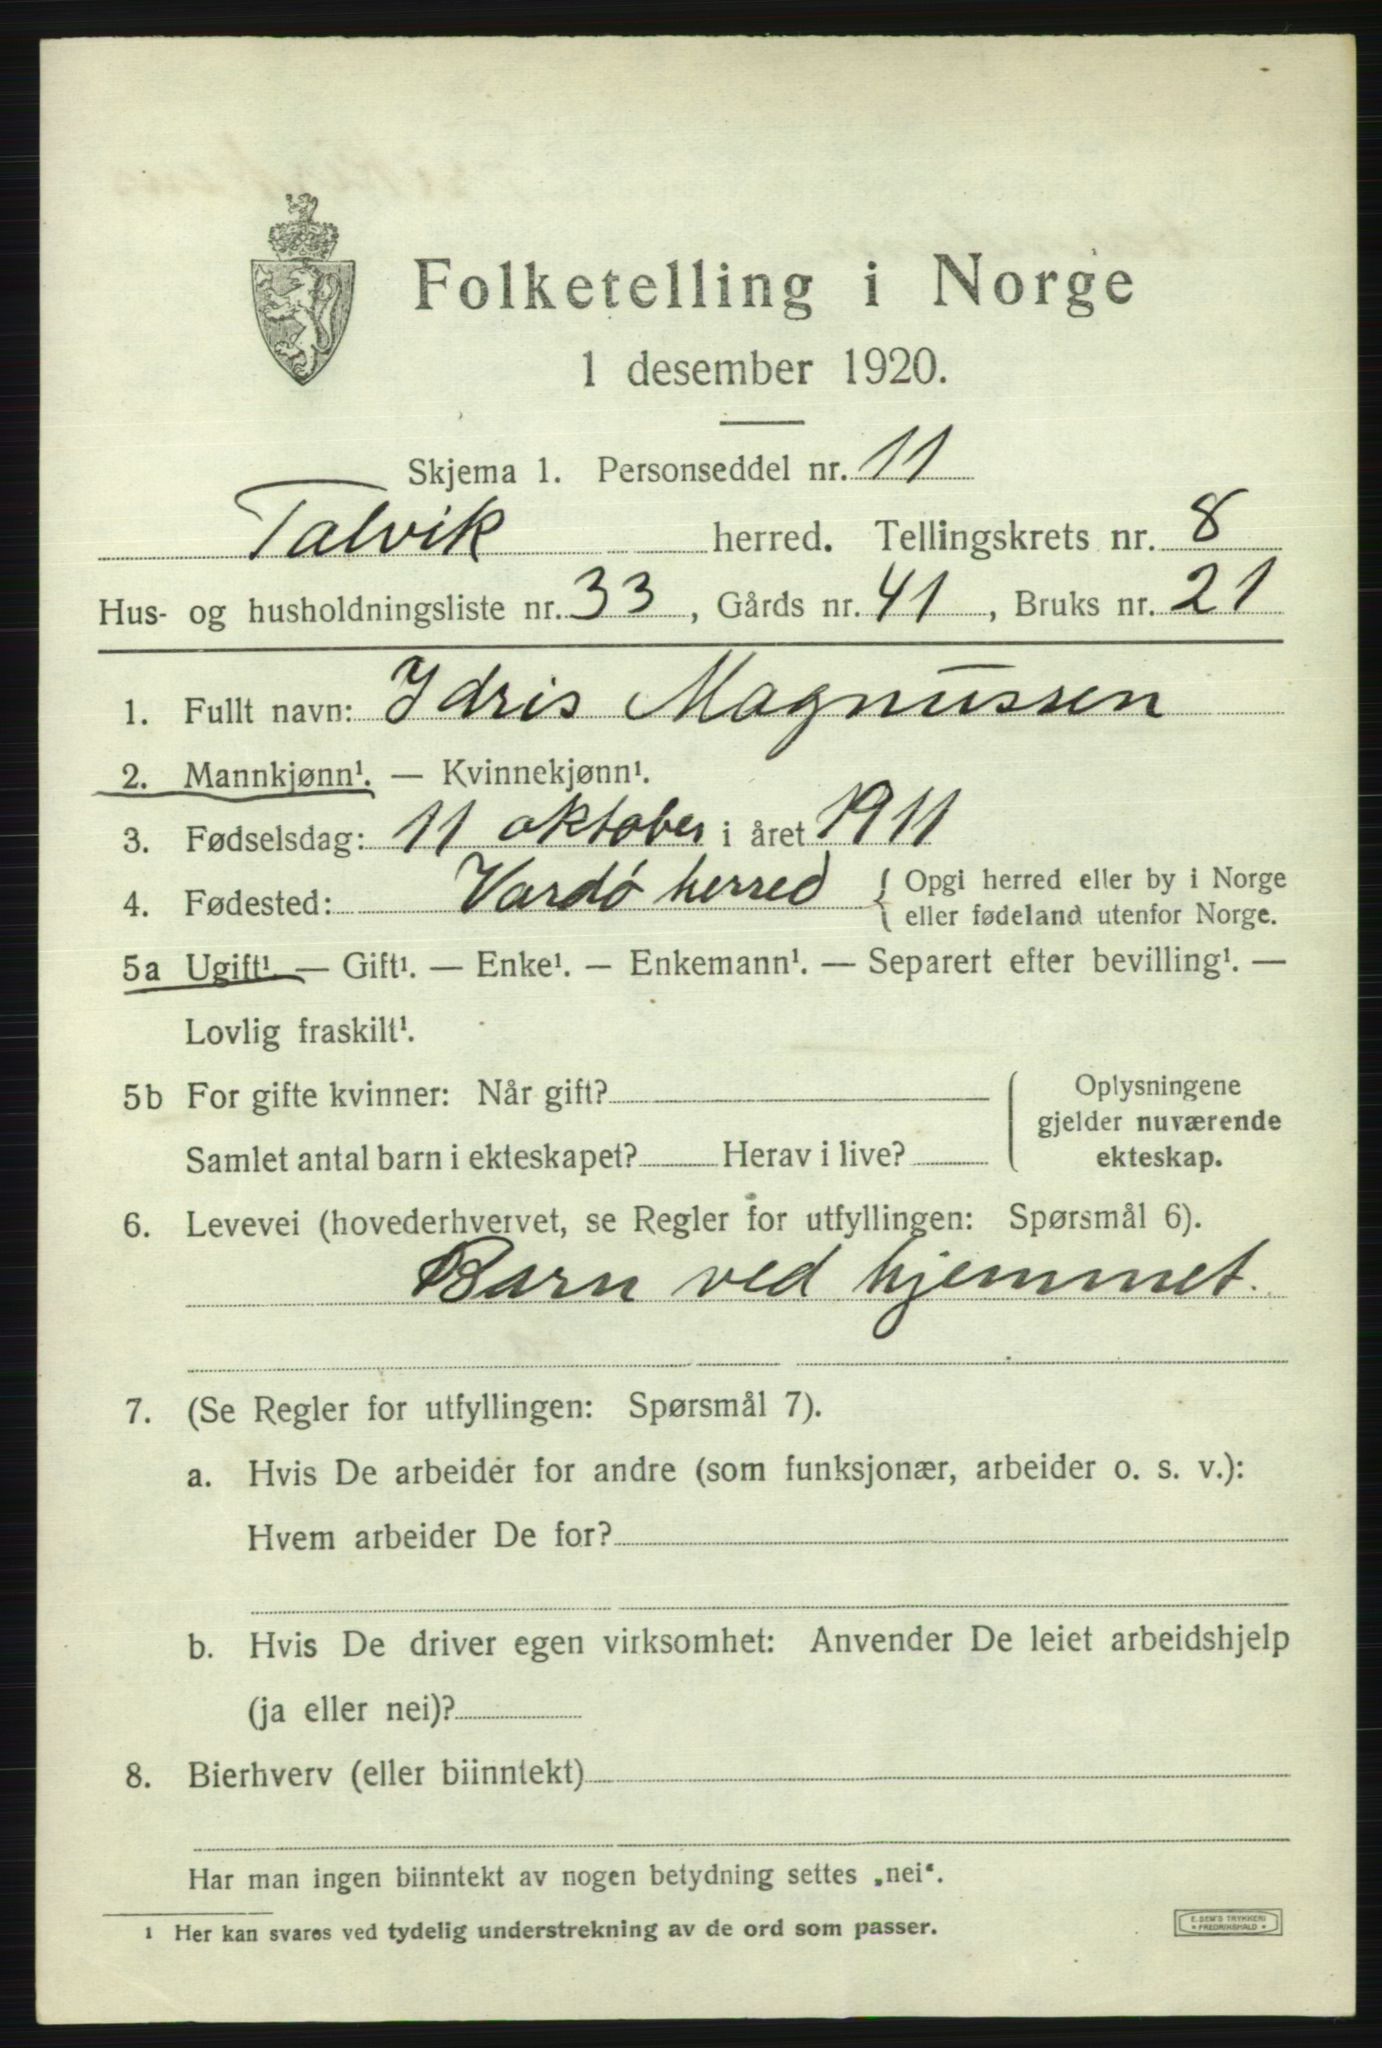 Folketelling i Norge
1 desember 1920.
Skjema 1. Personseddel nr. 11
Talvik herred. Tellingskrets nr. 8
Hus- og husholdningsliste nr. 33, Gårds nr. 41, Bruks nr. 21
1. Fullt navn: Idris Magnussen
2. Mannkjønn¹. — Kvinnekjønn¹.
3. Fødselsdag: 11 oktober i året 1911
4. Fødested: Vardö herred { Opgi herred eller by i Norge
eller fødeland utenfor Norge.
5a Ugift¹ — Gift¹. — Enke¹. — Enkemann¹. — Separert efter bevilling¹. —
Lovlig fraskilt¹.
5b For gifte kvinner: Når gift?
Samlet antal barn i ekteskapet? Herav i live?
Oplysningene
gjelder nuværende
ekteskap.
6. Levevei (hovederhvervet, se Regler for utfyllingen: Spørsmål 6).
Barn ved hjemmet.
7. (Se Regler for utfyllingen: Spørsmål 7).
a. Hvis De arbeider for andre (som funksjonær, arbeider o. s. v.):
Hvem arbeider De for?
b. Hvis De driver egen virksomhet: Anvender De leiet arbeidshjelp
(ja eller nei)?
8. Bierhverv (eller biinntekt)
Har man ingen biinntekt av nogen betydning settes „nei“.
¹ Her kan svares ved tydelig understrekning av de ord som passer.
E. SEM'S TRYKKERI
* FREDRIKSHALD *